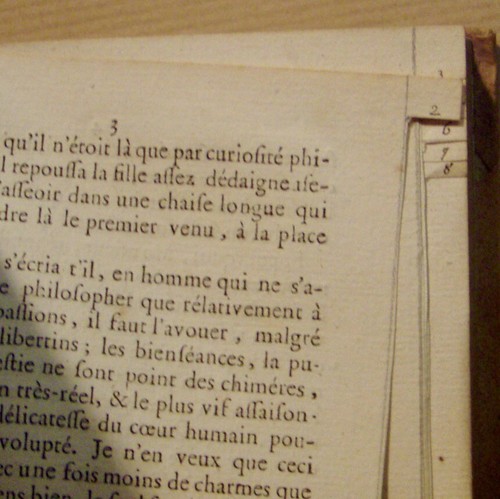 3
qu'il n'étoit là que par curiosité phi-
l repoussa la fille assez dédaigneuse-
'asseoir dans une chaise longue qui
dre là le premier venu, à la place
s'écria t'il, en homme qui ne s'a-
e philosopher que rélativement à
passions, il faut l'avouer, malgré
libertins; les bienséances, la pu-
estie ne sont point des chiméres,
n très-réel, & le plus vif assaison-
délicatesse du cœur humain pou-
volupté. Je n'en veux que ceci
ec une fois moins de charmes que
ens bien
2
6
7
8